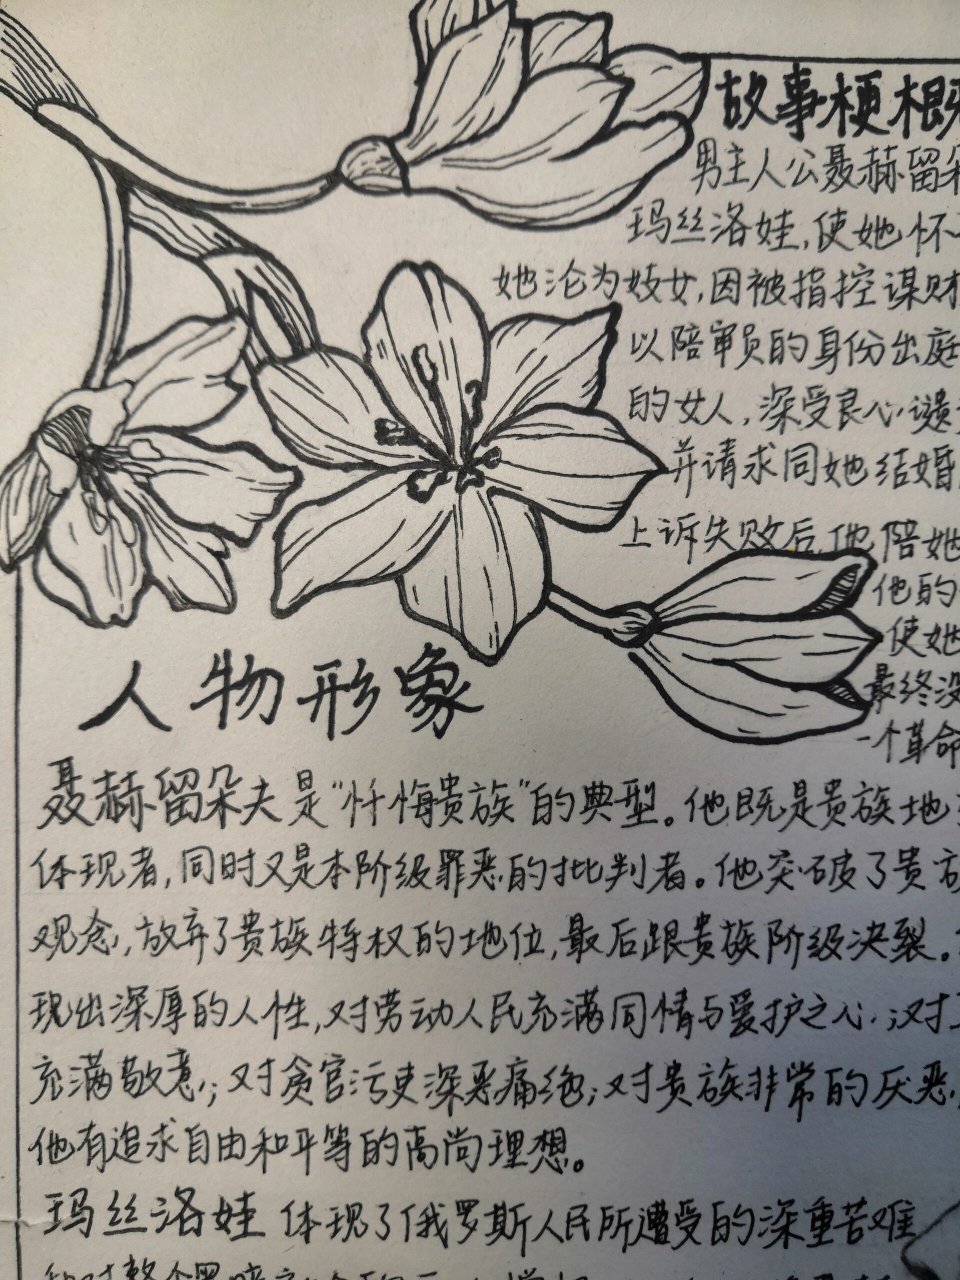 故事梗概
男主人公聂赫留朵
玛丝洛娃,使她怀
她沦为妓女,因被指控谋财
以陪审员的身份出庭
的女人,深受良心谴
并请求同她结婚
上诉失败后,他陪她
他的
使她
最终没
一个革命
人物形象
聂赫留朵夫是“忏悔贵族”的典型。他既是贵族地
体现者,同时又是本阶级罪恶的批判者。他突破了贵族
观念,放弃了贵族特权的地位,最后跟贵族阶级决裂。
现出深厚的人性,对劳动人民充满同情与爱护之心,对
充满敬意;对贪官污吏深恶痛绝;对贵族非常的厌恶,
他有追求自由和平等的高尚理想。
玛丝洛娃 体现了俄罗斯人民所遭受的深重苦难